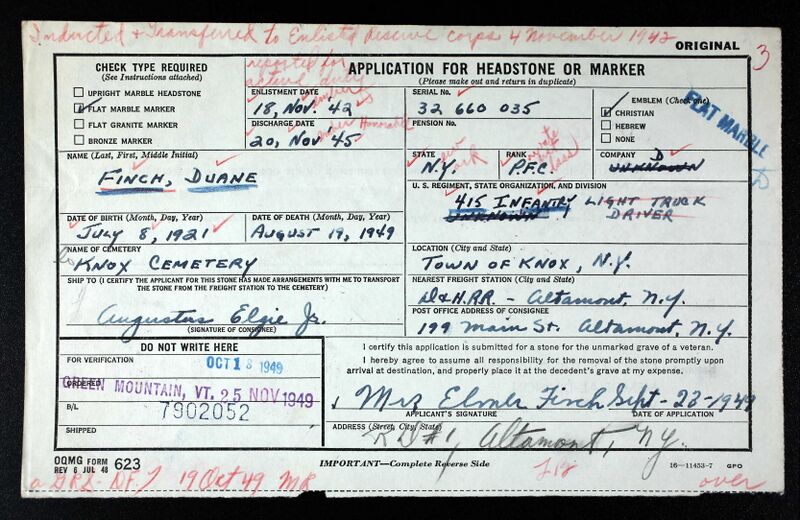 Inducted & Transferred to Enlisted Reserve Corps 4 November 1942
ORIGINAL
3
CHECK TYPE REQUIRED
(See Instructions attached)
UPRIGHT MARBLE HEADSTONE
FLAT MARBLE MARKER
FLAT GRANITE MARKER
BRONZE MARKER
reported for
active duty
APPLICATION FOR HEADSTONE OR MARKER
(Please make out and return in duplicate)
ENLISTMENT DATE
18, Nov. '42
DISCHARGE DATE
20, Nov '45
Honorable
SERIAL No.
32 660 035
PENSION No.
EMBLEM (Check one)
CHRISTIAN
HEBREW
NONE
FLAT MARBLE
NAME (Last, First, Middle Initial)
FINCH, DUANE
STATE
N.Y.
New York
RANK
P.F.C.
private 1st class
COMPANY
D
UNKNOWN
U. S. REGIMENT, STATE ORGANIZATION, AND DIVISION
415 INFANTRY LIGHT TRUCK
UNKNOWN DRIVER
DATE OF BIRTH (Month, Day, Year)
JULY 8, 1921
DATE OF DEATH (Month, Day, Year)
AUGUST 19, 1949
NAME OF CEMETERY
KNOX CEMETERY
LOCATION (City and State)
TOWN OF KNOX, N.Y.
SHIP TO (I CERTIFY THE APPLICANT FOR THIS STONE HAS MADE ARRANGEMENTS WITH ME TO TRANSPORT
THE STONE FROM THE FREIGHT STATION TO THE CEMETERY)
Augustus Elgie Jr.
(SIGNATURE OF CONSIGNEE)
NEAREST FREIGHT STATION (City and State)
D&H.RR. - Altamont, N.Y.
POST OFFICE ADDRESS OF CONSIGNEE
199 Main St. Altamont, N.Y.
DO NOT WRITE HERE
FOR VERIFICATION
OCT 18 1949
ORDERED
GREEN MOUNTAIN, VT. 25 NOV 1949
B/L
7902052
SHIPPED
I certify this application is submitted for a stone for the unmarked grave of a veteran.
I hereby agree to assume all responsibility for the removal of the stone promptly upon
arrival at destination, and properly place it at the decedent's grave at my expense.
Mrs Elmer Finch Sept-23-1949
APPLICANT'S SIGNATURE DATE OF APPLICATION
ADDRESS (Street, City, State)
RD#1, Altamont, N.Y.
OQMG FORM
REV 6 JUL 48 623
IMPORTANT—Complete Reverse Side
16—11453-7 GPO
19 Oct 49
over